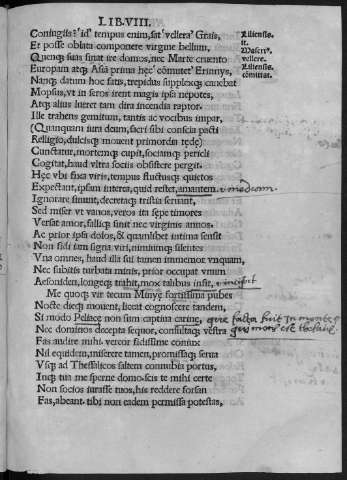 LIB. VIII.
Coniugiis? id' tempus enim, sat' vellera' Grais,
Et posse oblata componere virgine bellum,
Quenq; suas sinat ire domos, nec Marte cruento
Europam atq; Asiā prima hęc cōmutet Erinnys,
Nanq; datum hoc fatis, trepidus supplexq; canebat
Mopsus, vt in seros irent magis ipsa nepotes,
Atq; alius lueret tam dira incendia raptor.
Ille trahens gemitum, tantis ac vocibus impar,
(Quanquam iura deum, sacri sibi conscia pacti
Relligio, dulcisq; mouent primordia tędę)
Cunctatur, mortemq; cupit, sociamq; pericli
Cogitat, haud vltra sociis obsistere pergit.
Hęc vbi fixa viris, tempus fluctusq; quietos
Expectant, ipsam interea, quid restet, amantem
Ignorare sinunt, decretaq; tristia seruant,
Sed miser vt vanos, veros ita sępe timores
Versat amor, fallitq; sinit nec virginis annos.
Ac prior ipsa dolos, & quamlibet intima sensit
Non fidi iam signa viri, nimiumq; silentes
Vna omnes, haud illa sui tamen immemor vnquam,
Nec subitis turbata minis, prior occupat vnum
Aesoniden, longeq; trahit, mox talibus infit,
Me quoq; vir tecum Minyę fortissima pubes
Nocte dieq; mouent, liceat cognoscere tandem,
Si modo Peliacę non sum captiua carinę,
Nec dominos decepta sequor, consultaq; vestra
Fas audire mihi. vereor fidissime coniux
Nil equidem, miserere tamen, promissaq; serua
Vsq; ad Thessalicos saltem connubia portus,
Inq; tua me sperne domo. scis te mihi certe
Non socios iurasse tuos, his reddere forsan
Fas, abeant. tibi non eadem permissa potestas,
Biliensis.
it.
Maser'.
vellere.
Biliensis.
cōmittat.